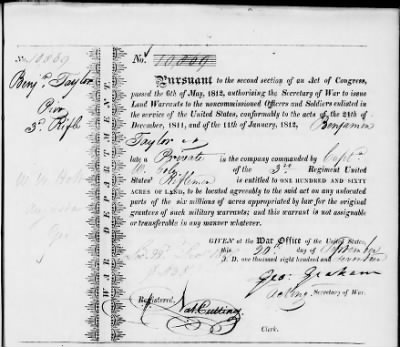 No. 10869
No. 10869
Benj. Taylor
Priv
3d Rifle
WAR DEPARTMENT.
Pursuant to the second section of an Act of Congress,
passed the 6th of May, 1812, authorising the Secretary of War to issue
Land Warrants to the noncommissioned Officers and Soldiers enlisted in
the service of the United States, conformably to the acts of the 24th of
December, 1811, and of the 11th of January, 1812, Benjamin
Taylor
late a Private in the company commanded by Capt.
of the 3d Regiment United
States' Riflemen is entitled to ONE HUNDRED AND SIXTY
ACRES OF LAND, to be located agreeably to the said act on any unlocated
parts of the six millions of acres appropriated by law for the original
grantees of such military warrants; and this warrant is not assignable
or transferable in any manner whatever.
GIVEN at the War Office of the United States,
this 20th day of
A. D. one thousand eight hundred and seventeen
Geo: Graham
Acting Secretary of War.
Registered, Nat Cutting
Clerk.